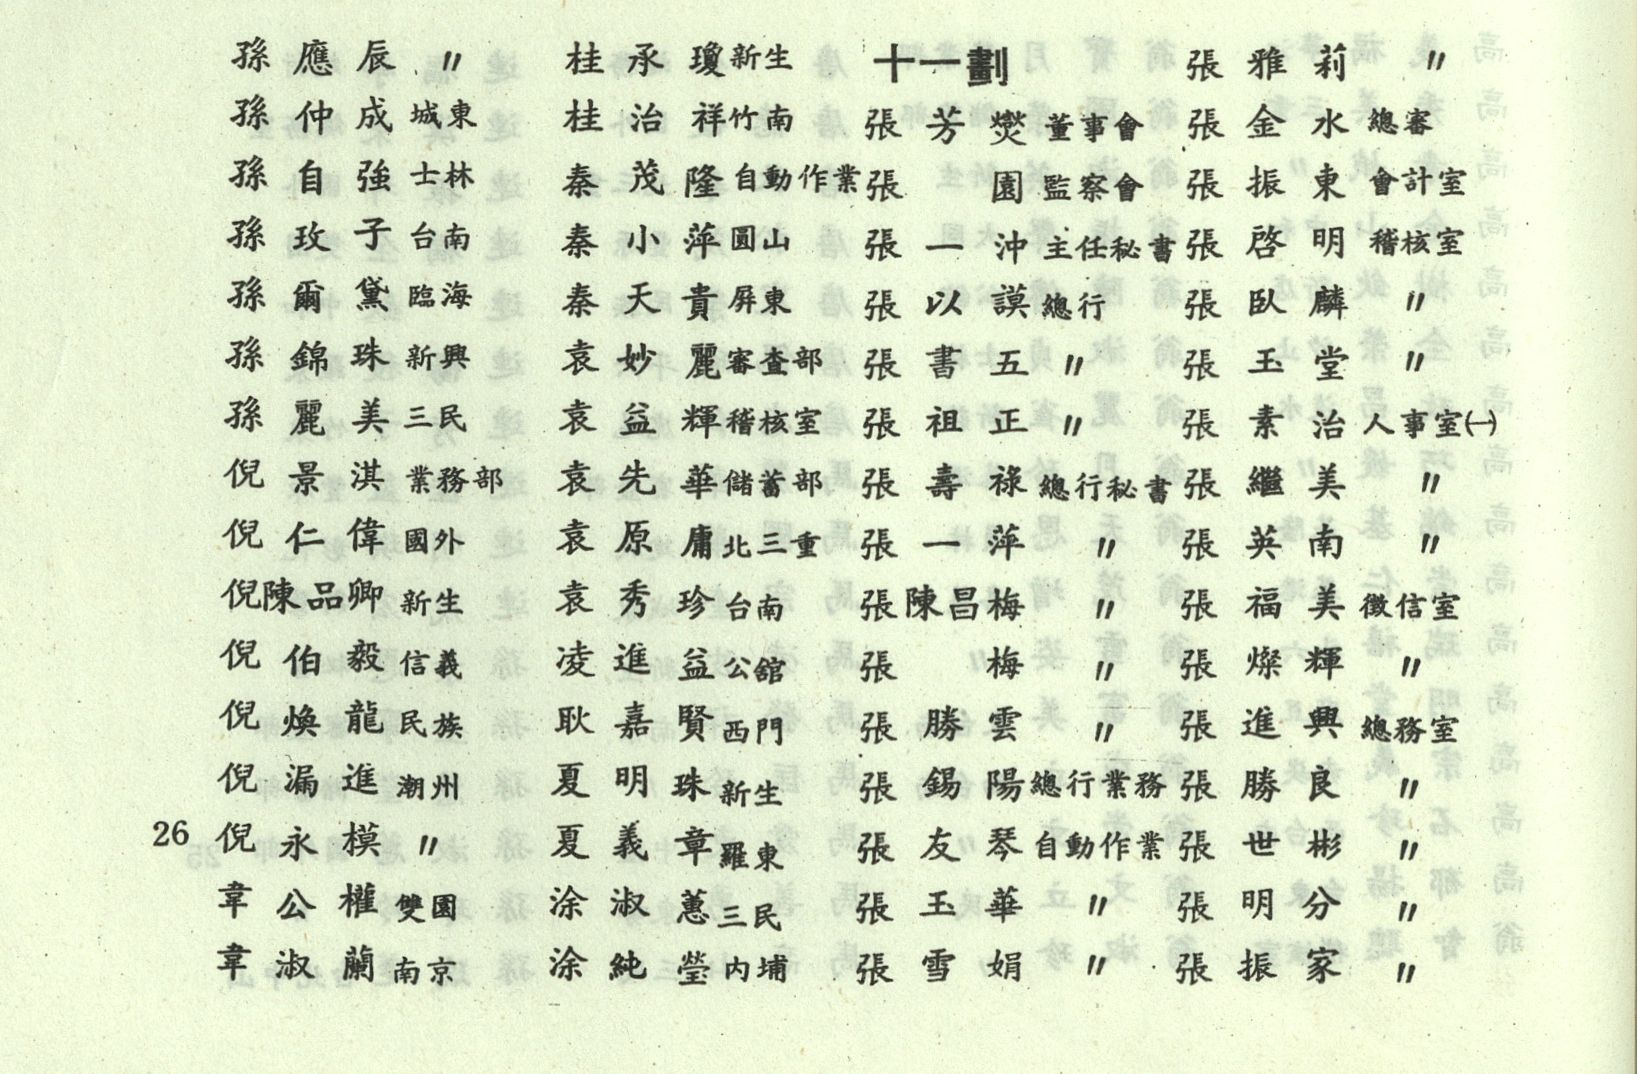 孫應辰 〃
孫仲成 城東
孫自強 士林
孫玫子 台南
孫爾黛 臨海
孫錦珠 新興
孫麗美 三民
倪景淇 業務部
倪仁偉 國外
倪陳品卿 新生
倪伯毅 信義
倪煥龍 民族
倪漏進 潮州
倪永模 〃
韋公權 雙園
韋淑蘭 南京
桂承瓊 新生
桂治祥 竹南
秦茂隆 自動作業
秦小萍 圓山
秦天貴 屏東
袁妙麗 審查部
袁益輝 稽核室
袁先華 儲蓄部
袁原庸 北三重
袁秀珍 台南
凌進益 公舘
耿嘉賢 西門
夏明珠 新生
夏義章 羅東
涂淑蕙 三民
涂純瑩 內埔
十一劃
張芳燮 董事會
張園 監察會
張一沖 主任秘書
張以謨 總行
張書五 〃
張祖正 〃
張壽祿 總行秘書
張一萍 〃
張陳昌梅 〃
張梅 〃
張勝雲 〃
張錫陽 總行業務
張友琴 自動作業
張玉華 〃
張雪娟 〃
張雅莉 〃
張金水 總審
張振東 會計室
張啓明 稽核室
張臥麟 〃
張玉堂 〃
張素治 人事室㈠
張繼美 〃
張英南 〃
張福美 徵信室
張燦輝 〃
張進興 總務室
張勝良 〃
張世彬 〃
張明分 〃
張振家 〃
26